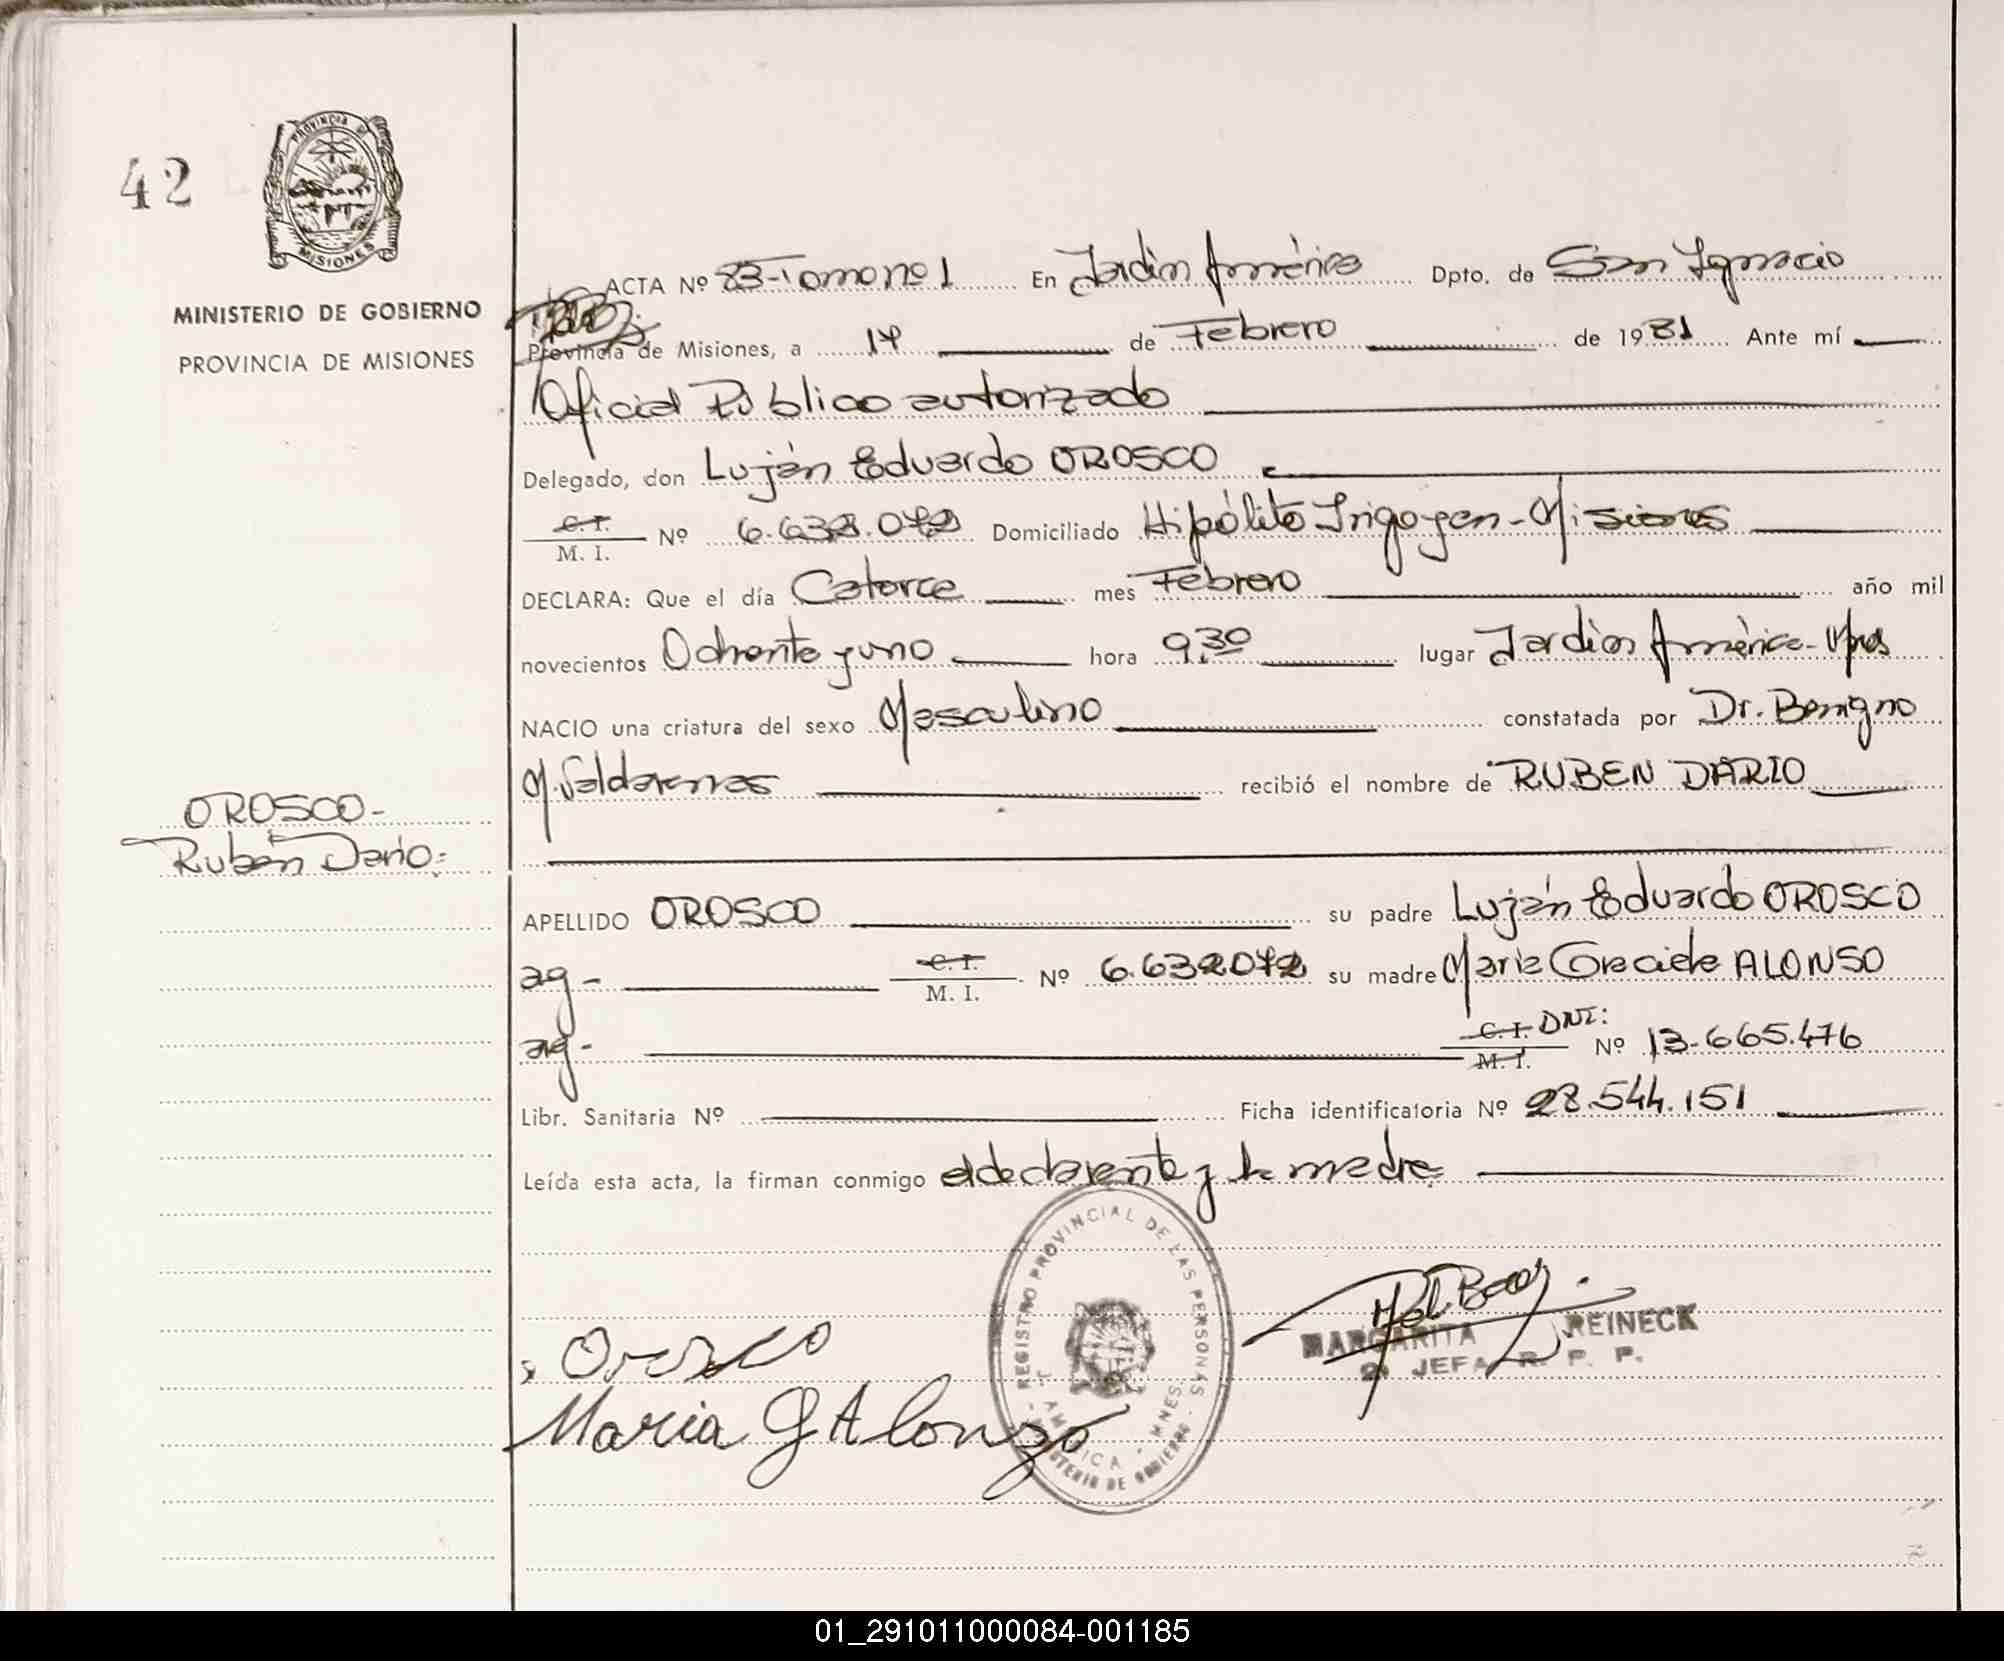 42
PROVINCIA DE
MISIONES
MINISTERIO DE GOBIERNO
PROVINCIA DE MISIONES
ACTA Nº 83-Tomo nº 1 En Jardin América Dpto. de San Ignacio
Provincia de Misiones, a 17 de Febrero de 1981 Ante mí
Oficial Público autorizado
Delegado, don Luján Eduardo OROSCO
C. I. M. I. Nº 6.632.072 Domiciliado Hipólito Irigoyen-Misiones
DECLARA: Que el día Catorce mes Febrero año mil
novecientos Ochenta y uno hora 9,30 lugar Jardin América-Mnes
NACIO una criatura del sexo Masculino constatada por Dr. Benigno
M. recibió el nombre de RUBEN DARIO
OROSCO-
Ruben Dario:
APELLIDO OROSCO su padre Luján Eduardo OROSCO
ag- C. I. M. I. Nº 6.632072 su madre Maria Graciela ALONSO
ag- C. I. M. I. DNI: Nº 13.665.476
Libr. Sanitaria Nº Ficha identificatoria Nº 28.544.151
Leída esta acta, la firman conmigo el declarante y la madre
REGISTRO PROVINCIAL DE LAS PERSONAS
J. AMERICA - MNES.
MINISTERIO DE GOBIERNO
MARGARITA REINECK
2º JEFA R. P. P.
Orosco
Maria G Alonzo
01_291011000084-001185